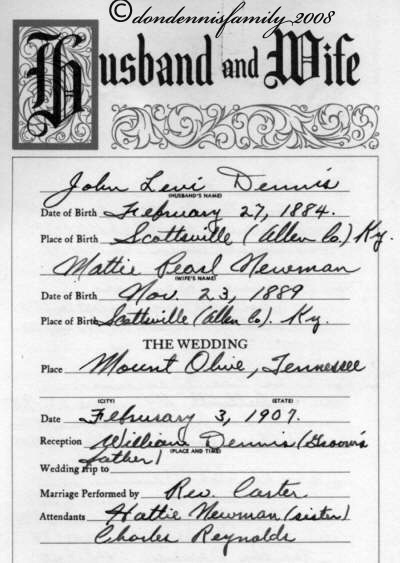 ©dondennisfamily 2008
Husband and Wife
John Levi Dennis
(HUSBAND'S NAME)
Date of Birth February 27, 1884.
Place of Birth Scottsville (Allen Co.) Ky.
Mattie Pearl Newman
(WIFE'S NAME)
Date of Birth Nov. 23, 1889
Place of Birth Scottsville (Allen Co). Ky.
THE WEDDING
Place Mount Olive, Tennessee
(CITY) (STATE)
Date February 3, 1907.
Reception William Dennis (Groom's
father) (PLACE AND TIME)
Wedding trip to
Marriage Performed by Rev. Carter
Attendants Hattie Newman (sister)
Charles Reynolds